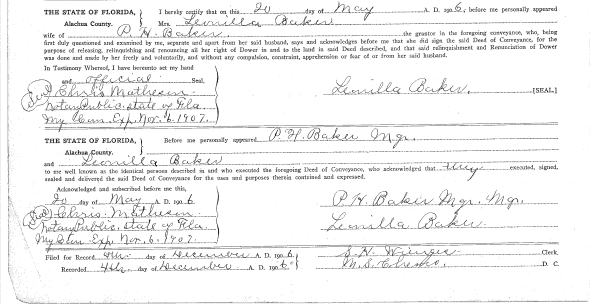 THE STATE OF FLORIDA, I hereby certify that on this 20 day of May A. D. 1906, before me personally appeared
Alachua County. Mrs. Leonilla Baker
wife of P. H. Baker. the grantor in the foregoing conveyance, who, being
first duly questioned and examined by me, separate and apart from her said husband, says and acknowledges before me that she did sign the said Deed of Conveyance, for the
purpose of releasing, relinquishing and renouncing all her right of Dower in and to the land in said Deed described, and that said relinquishment and Renunciation of Dower
was done and made by her freely and voluntarily, and without any compulsion, constraint, apprehension or fear of or from her said husband.
In Testimony Whereof, I have hereunto set my hand
and official Seal,
Seal Chris Matheson Leonilla Baker. [SEAL]
Notary Public. State of Fla.
My Com. Exp. Nov. 6. 1907.
THE STATE OF FLORIDA, Before me personally appeared P. H. Baker Mgr.
Alachua County.
and Leonilla Baker
to me well known as the identical persons described in and who executed the foregoing Deed of Conveyance, who acknowledged that they executed, signed,
sealed and delivered the said Deed of Conveyance for the uses and purposes therein contained and expressed.
Acknowledged and subscribed before me this,
20 day of May A. D. 1906 P. H. Baker Mgr. Mgr.
Seal Chris. Matheson
Notary Public. State of Fla. Leonilla Baker.
My Com. Exp. Nov. 6. 1907.
Filed for Record 4th day of December A. D. 1906 S. H. Clerk,
Recorded 4th day of December A. D. 1906 M. S. D. C.